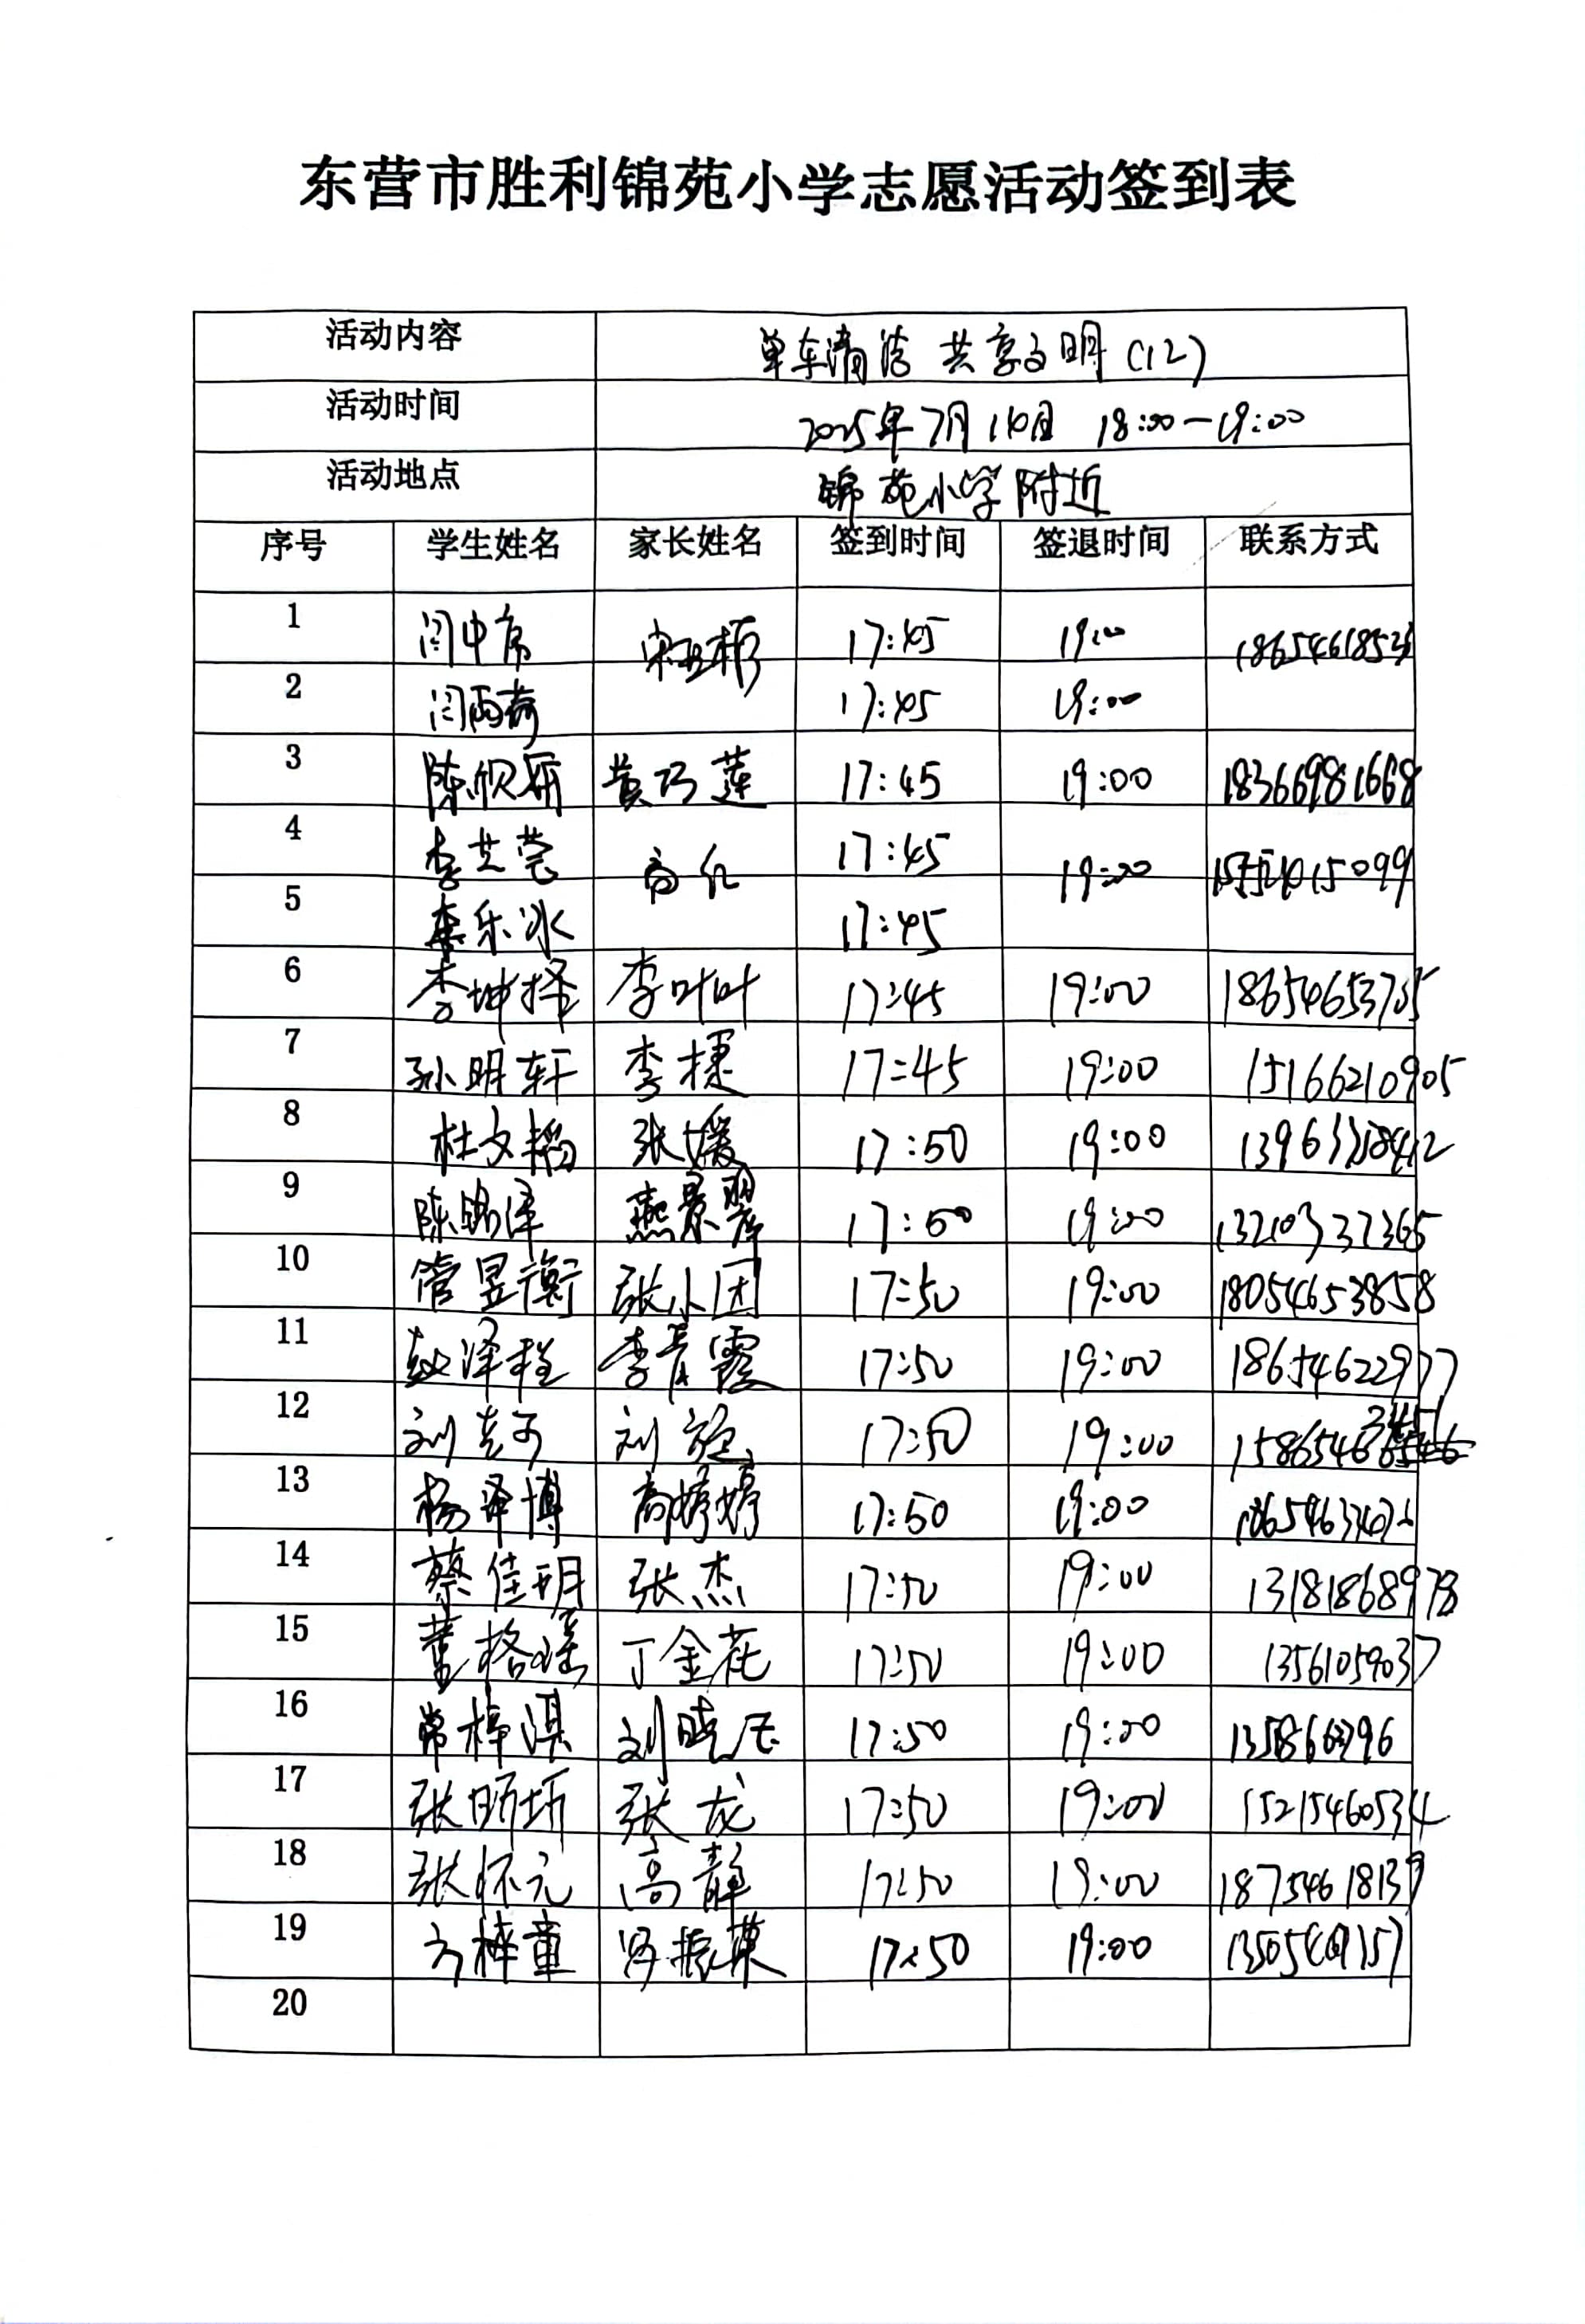 东营市胜利锦苑小学志愿活动签到表
活动内容 单车清洁 共享文明(12)
活动时间 2025年7月 18:00-19:00
活动地点 锦苑小学附近
序号 学生姓名 家长姓名 签到时间 签退时间 联系方式
1 闫中原 17:45 19:00
2 闫雨荷 17:45 19:00
3 陈欣妍 黄巧莲 17:45 19:00 18366981668
4 李艾莞 高红 17:45 19:00
5 李乐冰 17:45
6 李坤择 李叶叶 17:45 19:00 18654653735
7 孙明轩 李捷 17:45 19:00 15166210905
8 杜文韬 张媛 17:50 19:00
9 陈锦泽 燕景翠 17:50 19:00 13210337365
10 管昱衡 张小团 17:50 19:00 18054653858
11 赵泽程 李青霞 17:50 19:00 18654622977
12 刘 17:50 19:00
13 杨泽博 高婷婷 17:50 19:00
14 蔡佳玥 张杰 17:50 19:00 13181868978
15 董格瑶 丁金花 17:50 19:00 13561059037
16 常梓淇 刘晓庆 17:50 19:00
17 张昕圻 张龙 17:50 19:00 15215460534
18 张怀元 高静 17:50 19:00 18754618139
19 方梓童 17:50 19:00
20